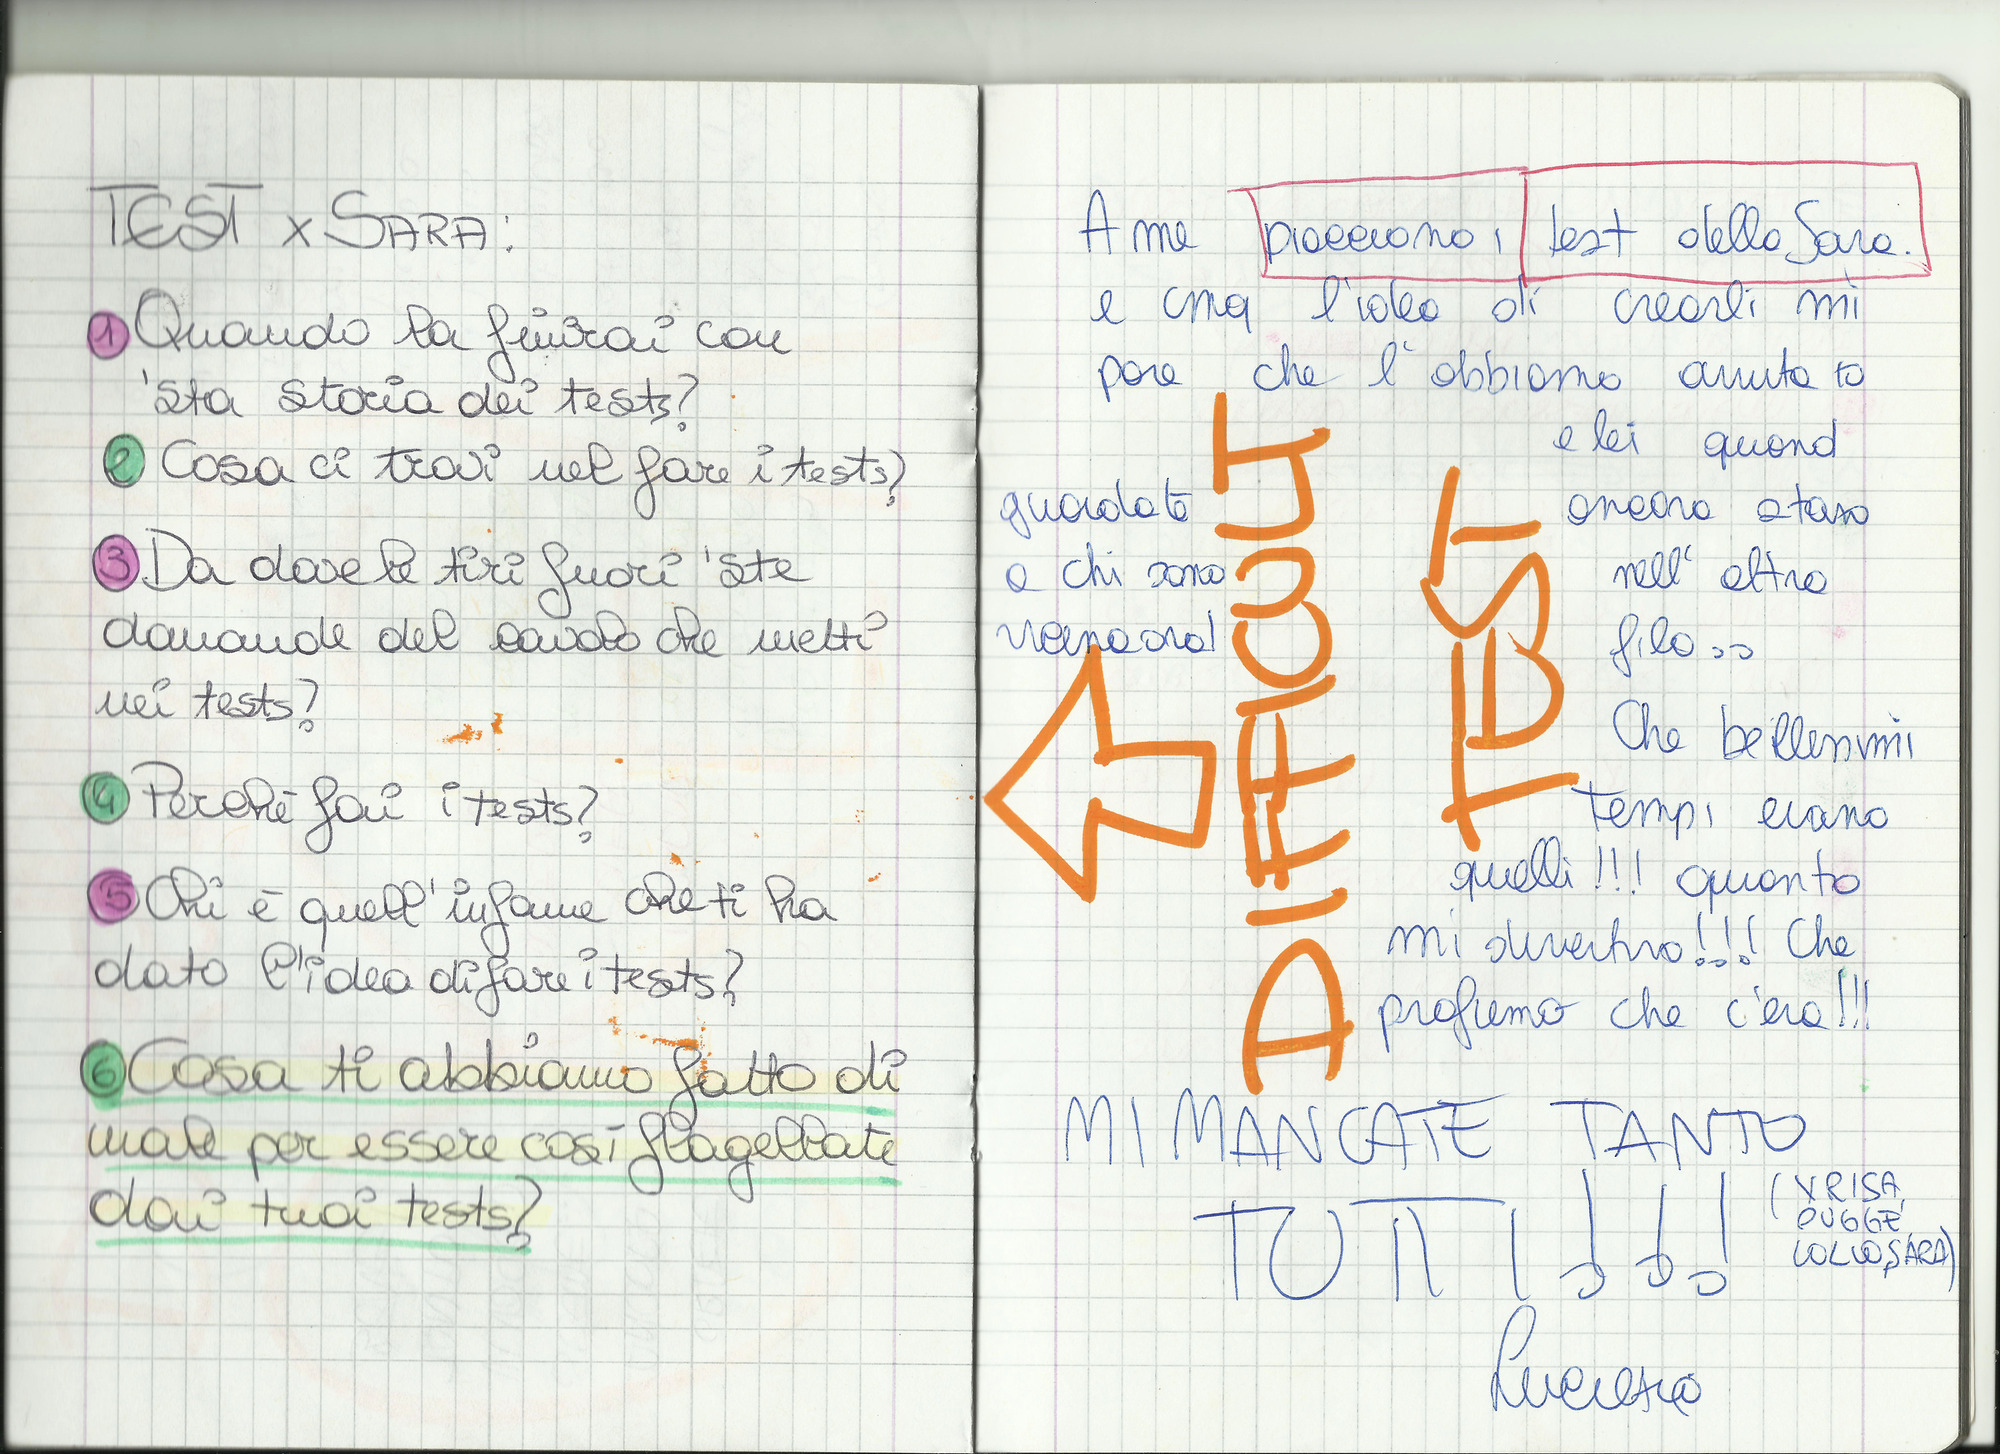 TEST x SARA:
1 Quando la finirai con
'sta storia dei tests?
2 Cosa ci trovi nel fare i tests?
3 Da dove le tiri fuori 'ste
domande del cavolo che metti
nei tests?
4 Perché fai i tests?
5 Chi è quell'infame che ti ha
dato l'idea di fare i tests?
6 Cosa ti abbiamo fatto di
male per essere così flagellate
dai tuoi tests?
A me piacciono i test della Sara.
e cmq l'idea di crearli mi
pare che l'abbiamo avuta io
e lei quand
ancora stavo
nell'altra
fila..
Che bellissimi
tempi erano
quelli!!! quanto
mi divertivo!!! Che
profumo che c'era!!!
guardate
a chi sono
vicina ora!
DIFFICULT
TEST
MI MANCATE TANTO
TUTTI!!!
(
SARA)
Lucrezia